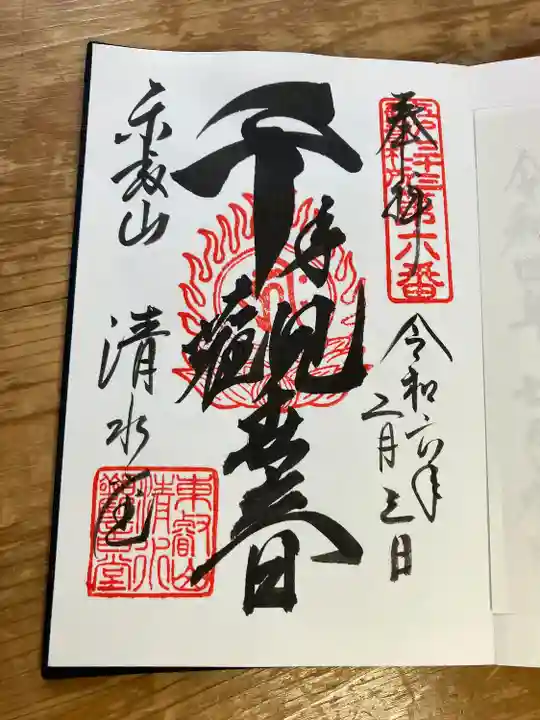 奉拝
第六番
令和六年
二月三日
千手観世音
東叡山
清水堂
東叡山
清水
観音堂